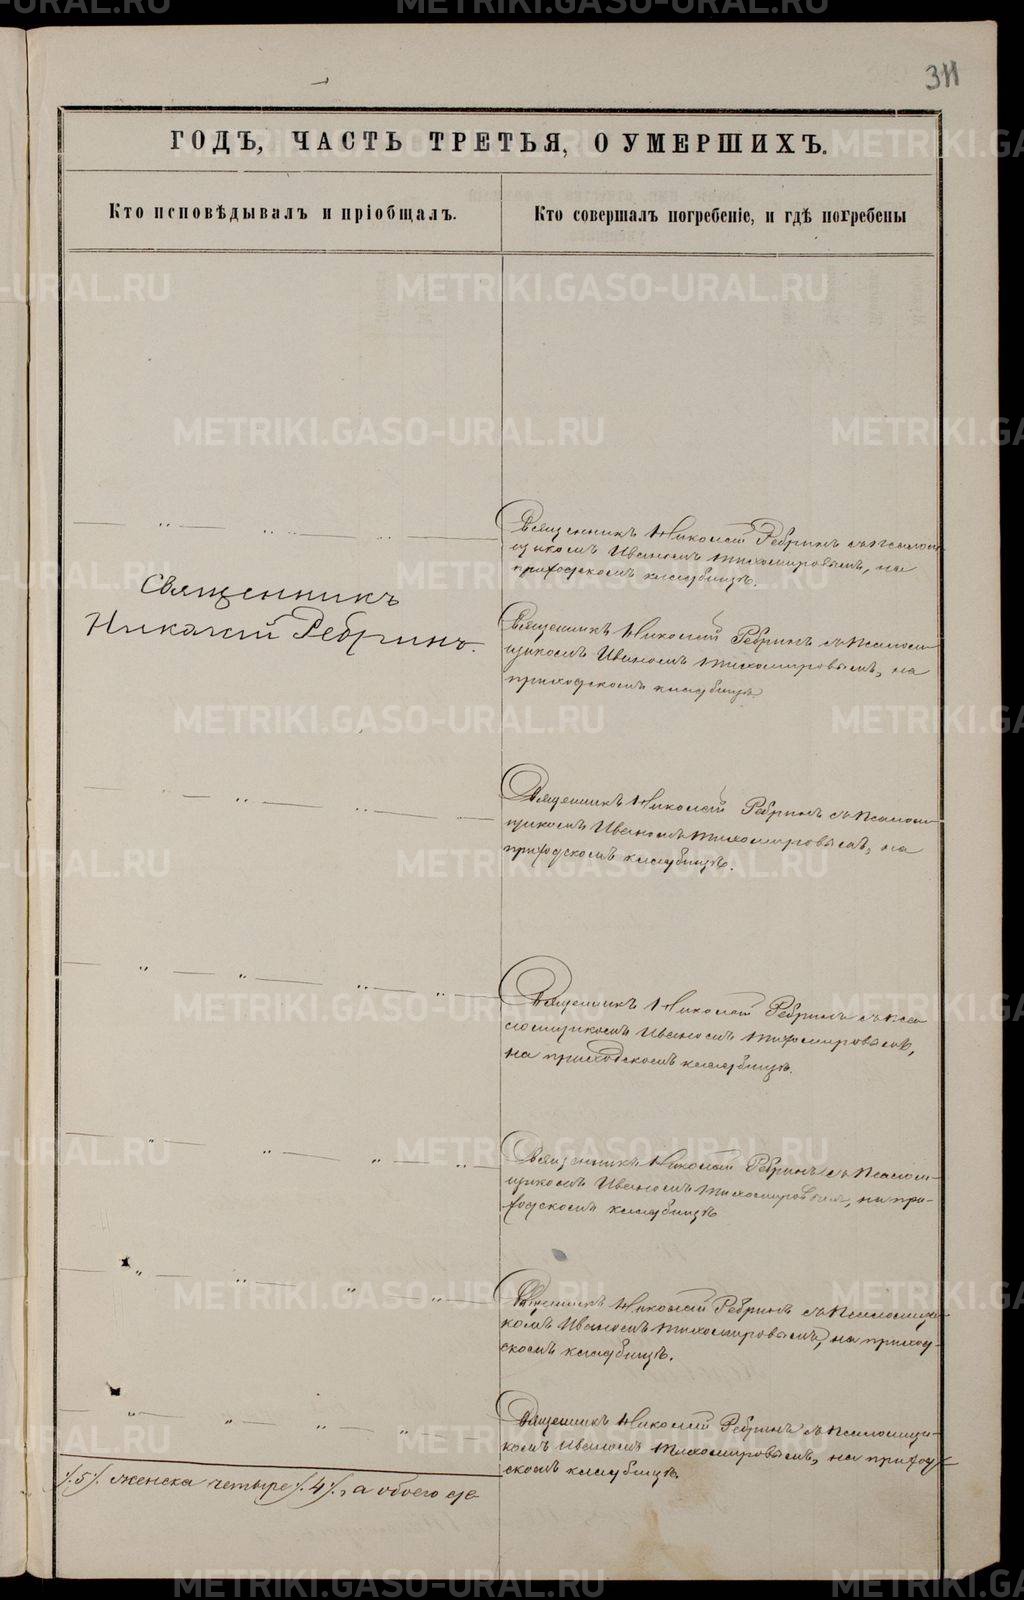 311
ГОДЪ, ЧАСТЬ ТРЕТЬЯ, О УМЕРШИХЪ.
Кто исповѣдывалъ и пріобщалъ.
Кто совершалъ погребеніе, и гдѣ погребены
Священникъ Николай Ребринъ съ псалом-
щикомъ Иваномъ Тихомировымъ, на
приходскомъ кладбищѣ.
Священникъ
Николай Ребринъ.
Священникъ Николай Ребринъ съ псалом-
щикомъ Иваномъ Тихомировымъ, на
приходскомъ кладбищѣ
Священникъ Николай Ребринъ съ псалом-
щикомъ Иваномъ Тихомировымъ, на
приходскомъ кладбищѣ.
Священникъ Николай Ребринъ съ пса-
ломщикомъ Иваномъ Тихомировымъ,
на приходскомъ кладбищѣ.
Священникъ Николай Ребринъ съ псалом-
щикомъ Иваномъ Тихомировымъ, на при-
ходскомъ кладбищѣ
Священникъ Николай Ребринъ съ псаломщи-
комъ Иваномъ Тихомировымъ, на приход-
скомъ кладбищѣ.
Священникъ Николай Ребринъ съ псаломщи-
комъ Иваномъ Тихомировымъ, на приход-
скомъ кладбищѣ.
/.5/. женска четыре /.4/., а обоего де-
METRIKI.GASO-URAL.RU